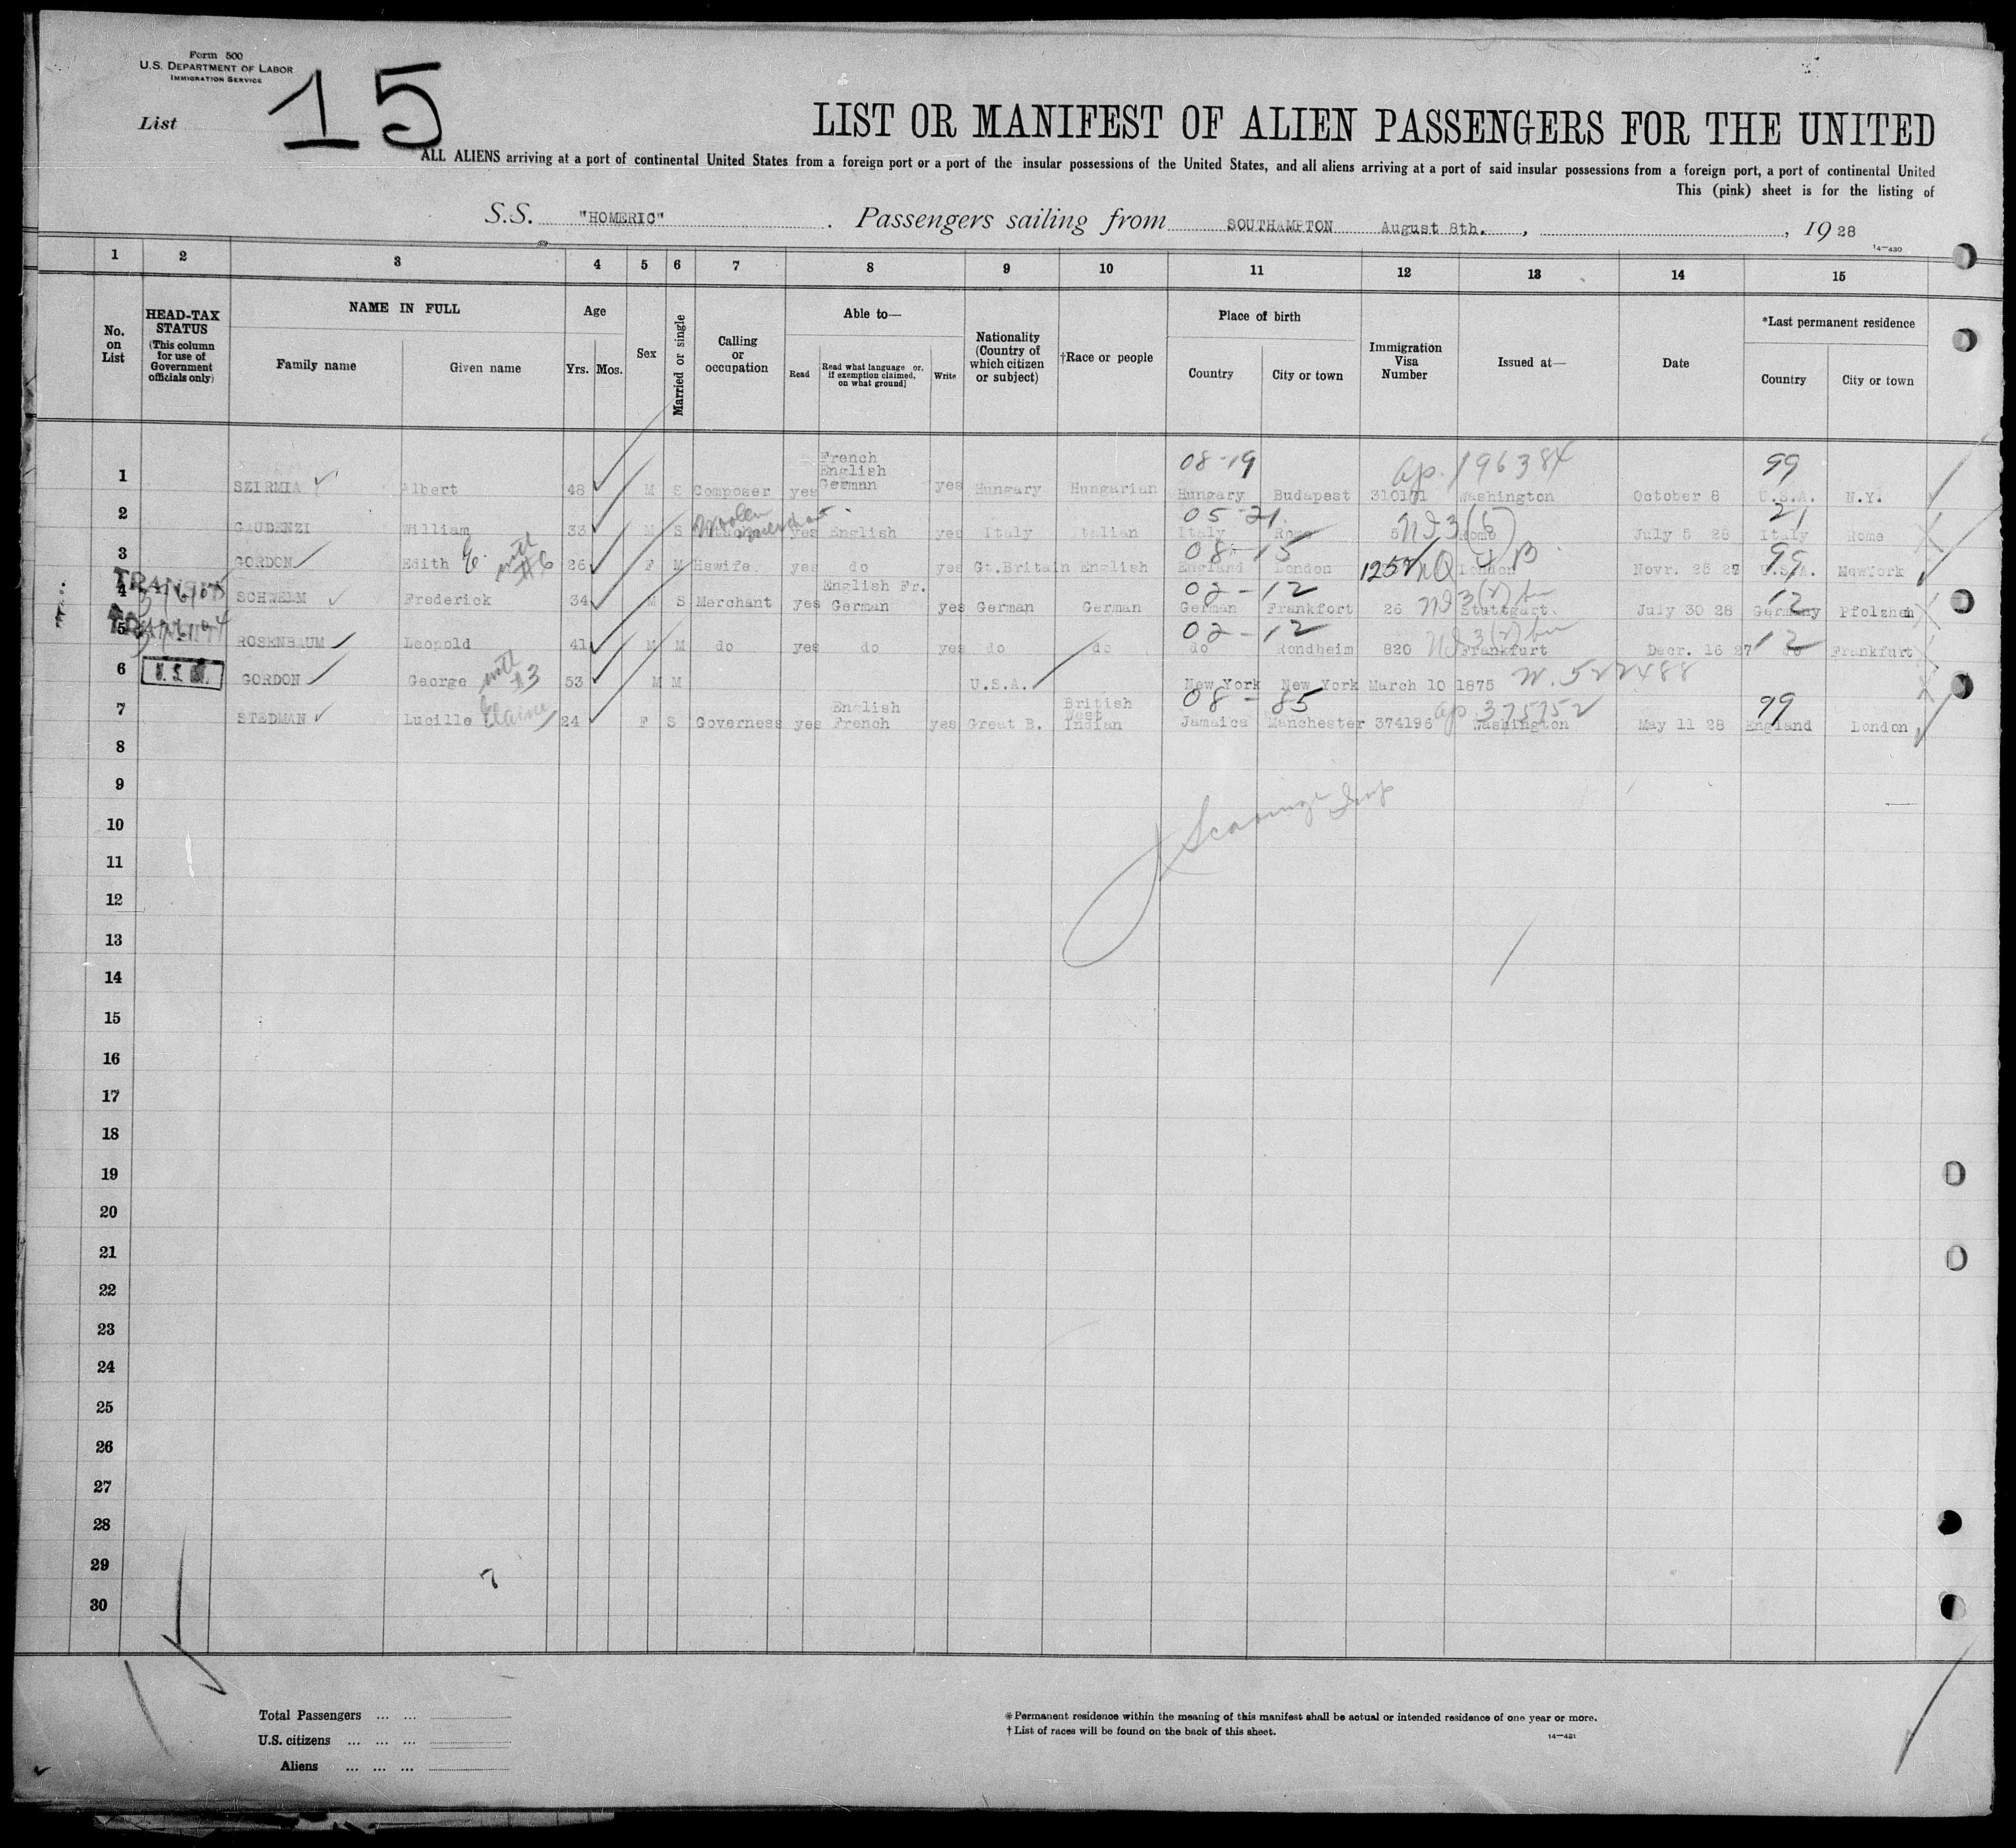 Form 500
U.S. DEPARTMENT OF LABOR
IMMIGRATION SERVICE
List 15
LIST OR MANIFEST OF ALIEN PASSENGERS FOR THE UNITED
ALL ALIENS arriving at a port of continental United States from a foreign port or a port of the insular possessions of the United States, and all aliens arriving at a port of said insular possessions from a foreign port, a port of continental United
This (pink) sheet is for the listing of
S.S. "HOMERIC" . Passengers sailing from SOUTHAMPTON August 8th. , , 1928
14—430
1 2 3 4 5 6 7 8 9 10 11 12 13 14 15
No. on List
HEAD-TAX STATUS
(This column for use of Government officials only)
NAME IN FULL
Family name Given name
Age
Yrs. Mos.
Sex
Married or single
Calling or occupation
Able to—
Read Read what language or, if exemption claimed, on what ground] Write
Nationality (Country of which citizen or subject)
†Race or people
Place of birth
Country City or town
Immigration Visa Number
Issued at—
Date
*Last permanent residence
Country City or town
08-19 ap. 196384 99
1 SZIRMIA Albert 48 M S Composer yes French English German yes Hungary Hungarian Hungary Budapest 310171 Washington October 8 U.S.A. N.Y.
Woolen merchant 05-21 21
2 GAUDENZI William 33 M S yes English yes Italy Italian Italy Rome 5 Rome July 5 28 Italy Rome
08-15 99
3 GORDON Edith E. with #6 26 F M Hswife. yes do yes Gt.Britain English England London 1252 London Novr. 25 27 U.S.A. NewYork
TRANSIT 02-12 12
4 SCHWELM Frederick 34 M S Merchant yes English Fr. German yes German German German Frankfort 26 Stuttgart. July 30 28 Germany Pfolzhen
TRANSIT 02-12 12
5 ROSENBAUM Leopold 41 M M do yes do yes do do do Rondheim 820 Frankfurt Decr. 16 27 do Frankfurt
6 U.S.C. GORDON George with #3 53 M M U.S.A. New York New York March 10 1875 N. 522488
08-85 ap 375752 99
7 STEDMAN Lucille Elaine 24 F S Governess yes English French yes Great B. British West Indian Jamaica Manchester 374196 Washington May 11 28 England London
8
9
10
11
12
13
14
15
16
17
18
19
20
21
22
23
24
25
26
27
28
29
7
30
Total Passengers ... ...
U.S. citizens ... ... ...
Aliens ... ... ...
*Permanent residence within the meaning of this manifest shall be actual or intended residence of one year or more.
†List of races will be found on the back of this sheet.
14—431